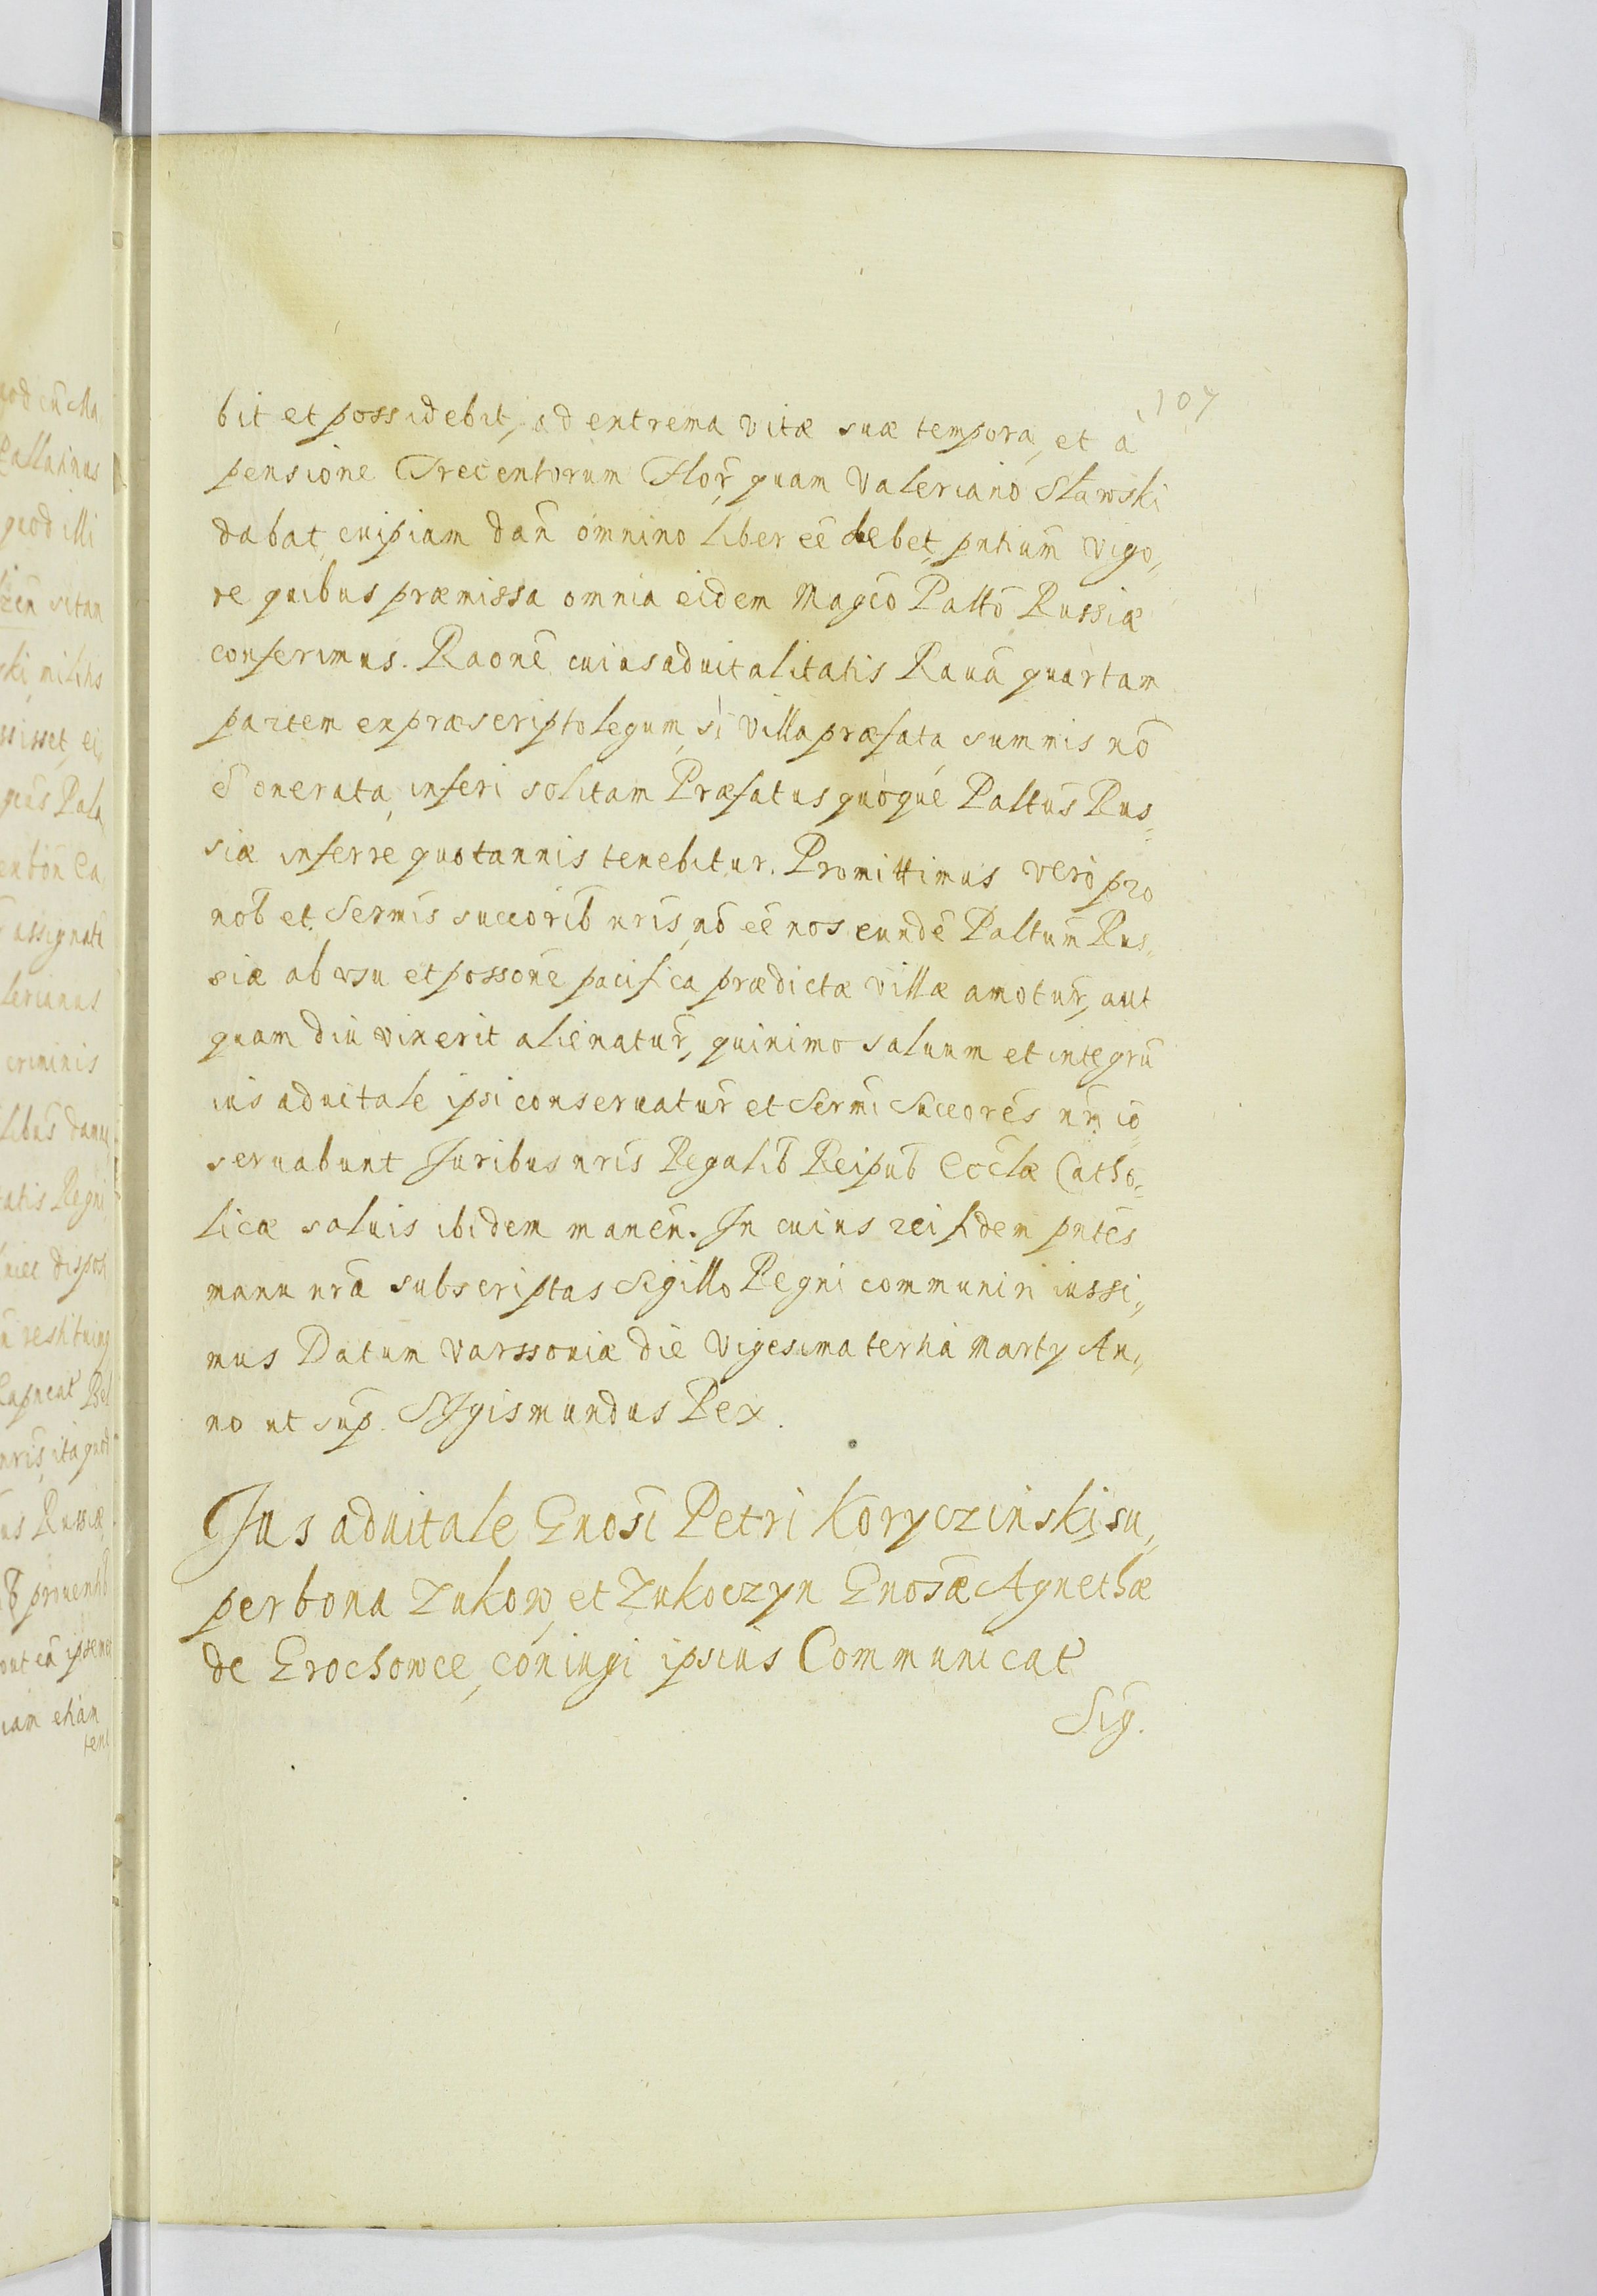 107
bit et possidebit, ad extrema vitæ suæ tempora, et à
pensione Trecentorum Flor̄, quam Valeriano Sławski
dabat, cuipiam dan̄ omnino liber eē debet, pntium̄ vigo„
re quibus præmissa omnia eidem Magc̄o Pałłō Russiæ
conferimus. Raōne cuius aduitalitatis Rauā quartam
partem ex præscripto legum, si villa præfata, summis nō
ē onerata, inferri solitam Præfatus quoque Paltus̄ Rus„
siæ inferre quotannis tenebitur. Promittimus verò pro
nob̄ et Serm̄is succorib̄ nr̄is, nō eē nos eundē Paltum̄ Rus„
siæ ab vsu et possōne pacifica prædictæ villæ amotur̄, aut
quam diu vixerit alienatur̄, quinimo saluum et integrū
ius aduitale ipsi conseruatur̄ et Serm̄i Succores̄ nr̄i cō
seruabunt Juribus nr̄is Regalib̄ Reipub̄ Eccl̄æ Catho„
licæ saluis ibidem manen̄. In cuius rei fidem pntēs
manu nr̄a subscriptas Sigillo Regni communiri iussi„
mus Datum Varssouiæ die Vigesima tertia Marty An„
no ut sup̄. Sigismundus Rex.
Jus aduitale Gnosī Petri Koryczinski, su„
per bona Zukow, et Zukoczyn Gnosǣ Agnethæ
de Grochowce, coniugi ipsius Communicat̄
Sig.